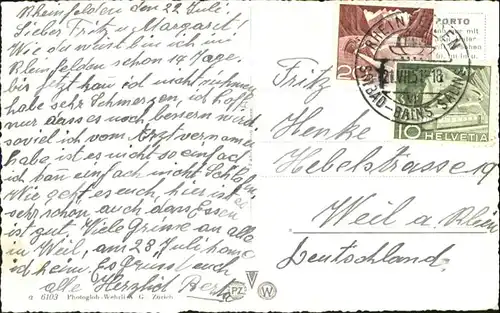 Rheinfelden den 22. Juli.
Lieber Fritz u Margaret!
Wie du weist bin ich mi
Rheinfelden schon 14 Tage,
bis jetzt han ich nicht
habe sehr Schmerzen, ich hoffe
nur dass es noch bessern wird
soviel ich vom Arzt vernomen
habe ist es nicht so einfach
ich kan einfach nicht Schlafen.
Wie geht es euch, hier ist es
sehr schön, auch das Essen
ist gut. Viele Grüsse an alle
in Weil, am 28 Juli kome
ich heim. Es grüsst euch
alle Herzlich Berta
6103 Photoglob-Wehrli A. G. Zürich
PZ
W
PORTO
20
RHEINFELDEN
21.VII.51-18
SOLBAD-BAINS SALINS
10 HELVETIA
Fritz
Henke
Hebelstrasse 19
Weil a. Rhein
Deutschland.